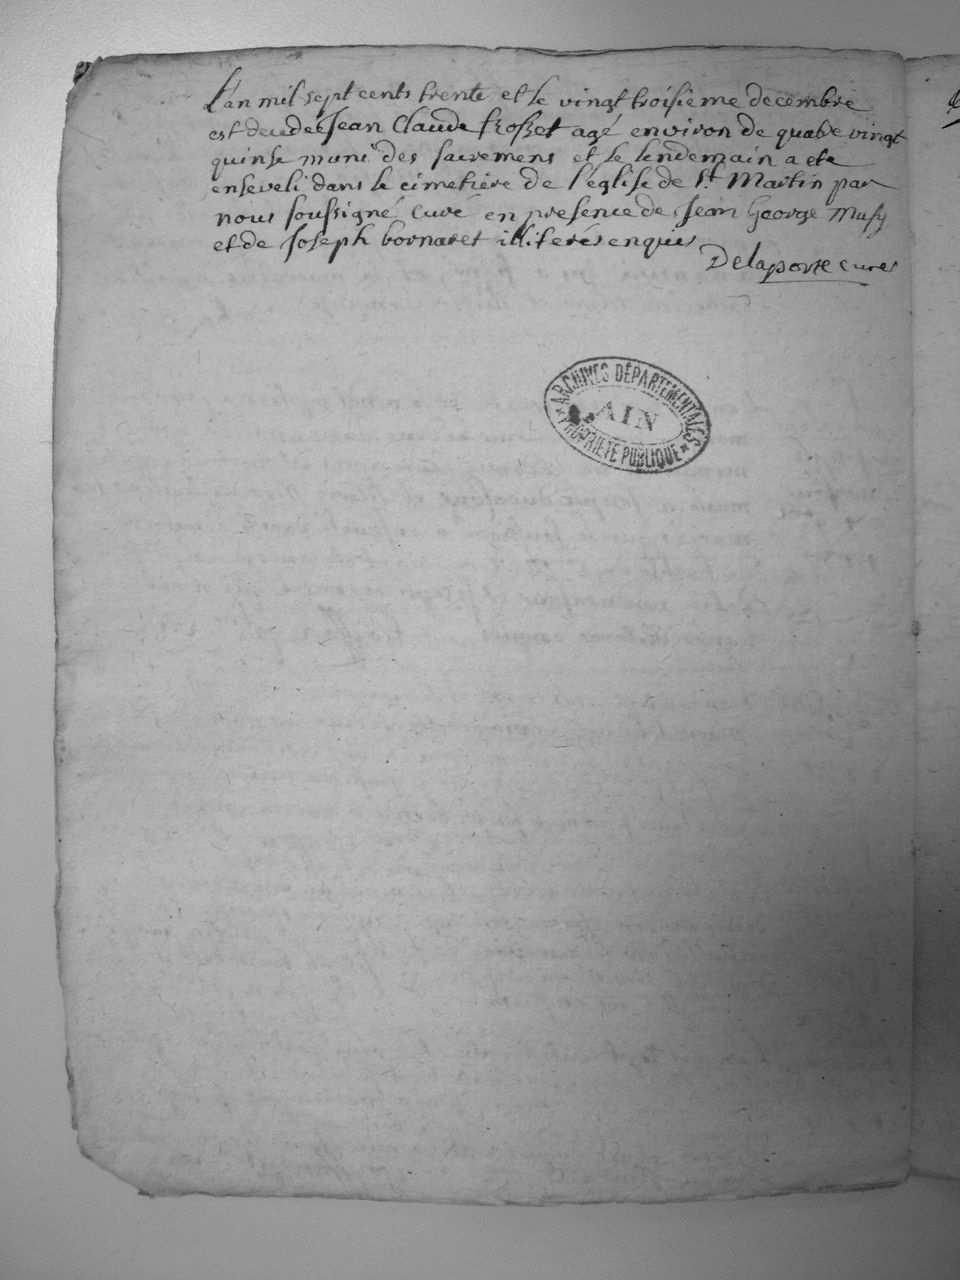 L'an mil sept cents trente et le vingt troisieme decembre
est decedé Jean Claude frosset agé environ de quatre vingt
quinse muni des sacremens et le lendemain a ete
enseveli dans le cimetiere de l'église de St Martin par
nous soussigné curé en presence de Jean George Musy
et de Joseph bornaret illiterés enquis
Delaporte curé
ARCHIVES DÉPARTEMENTALES
AIN
PROPRIÉTÉ PUBLIQUE